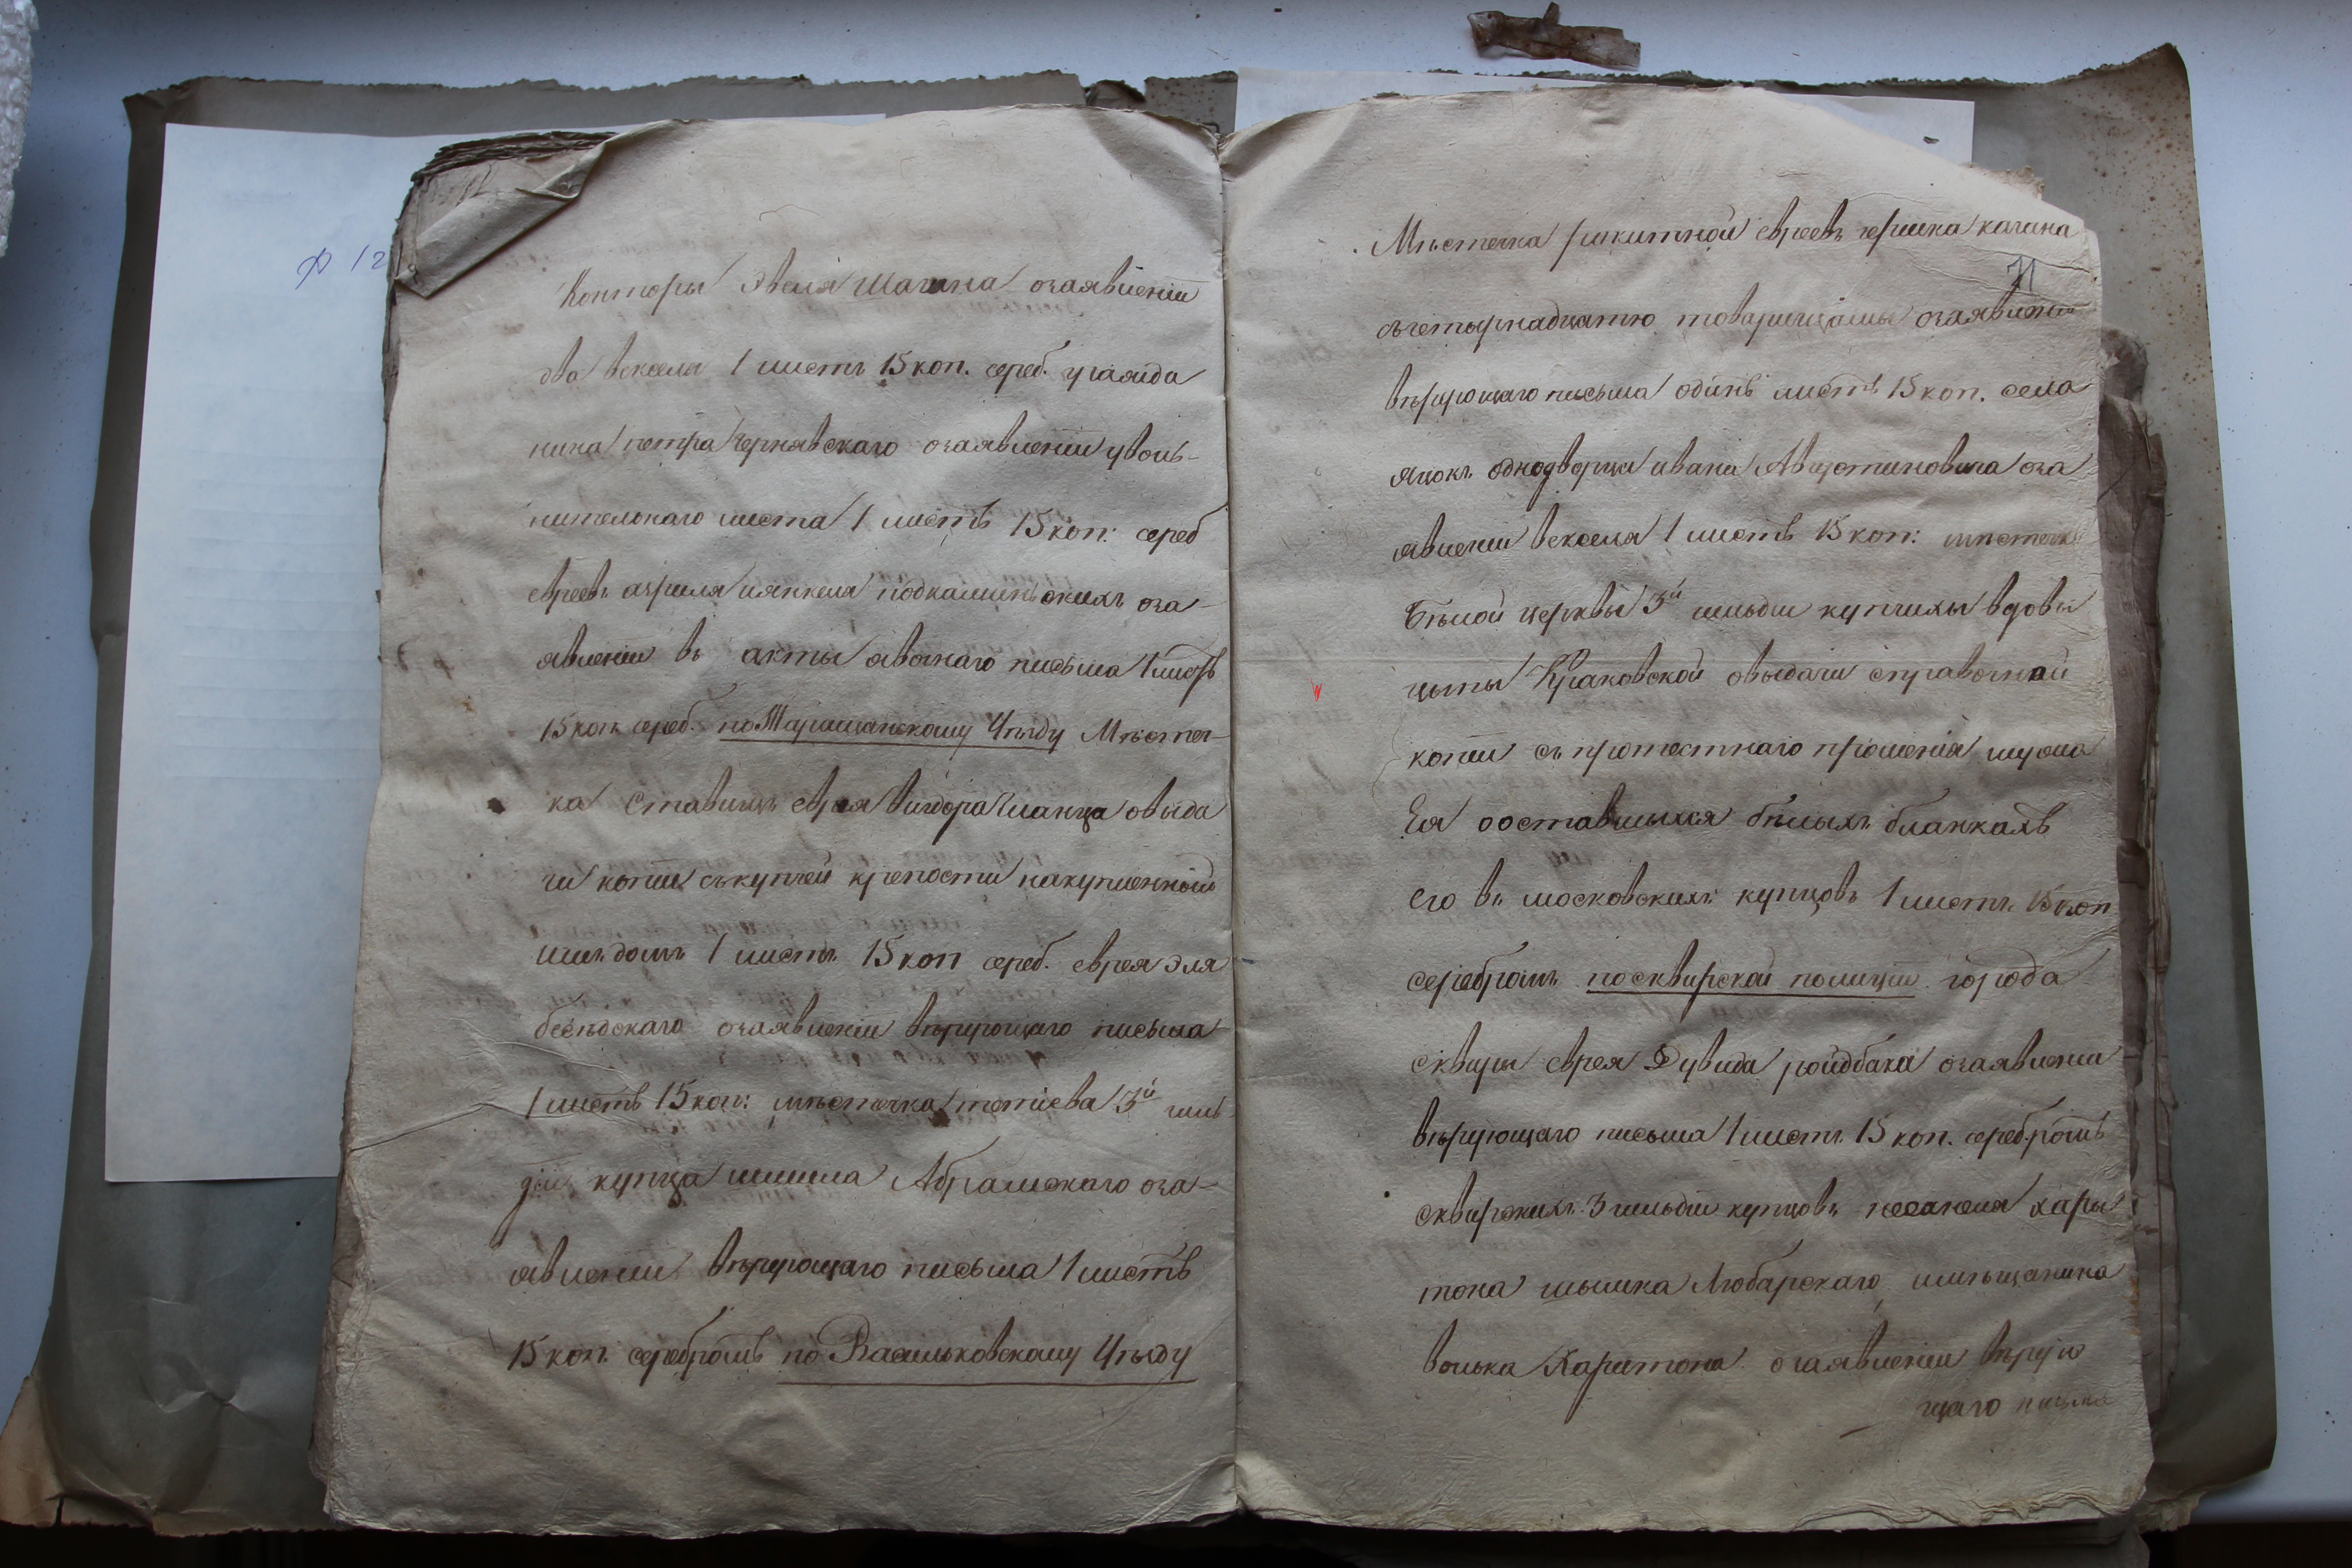 Ф 12
Конторы Эвеля Шагана озаявленіи
два векселя 1 листъ 15 коп. сереб. гражда
нина петра Чернявскаго озаявленіи уволь-
нительнаго листа 1 листъ 15 коп: сереб
евреевъ азриля иянкеля подкаминьскихъ оза-
явленіи въ акты явочнаго письма 1 листъ
15 коп. сереб. по Таращанскому Уѣзду Мѣстеч-
ка Ставищъ еврея Вигдора овыда
чи копіи скупчей крепости накупленный
имъ домъ 1 листъ 15 коп сереб. еврея Эля
бесѣдскаго озаявленіи вѣрующаго письма
1 листъ 15 коп: мѣстечка тетіева 3й гиль
діи купца Абрамскаго оза-
явленіи вѣрующаго письма 1 листъ
15 коп. серебромъ по Васильковскому Уѣзду
Мѣстечка ракитной евреевъ гершка кагана
71
счетырнадцатю товарищамы озаявлени
вѣрующаго письма одинъ листъ 15 коп. села
однодворца ивана оза
явлении векселя 1 листъ 15 коп: мѣстечка
Бѣлой церквы 3й гильдіи купчихы вдовы
цыпы Краковской овыдачи справочной
копіи съ протестнаго прошенія мужа
Ея ооставшыхся бѣлыхъ бланкахъ
его въ московскихъ купцовъ 1 листъ 15 коп
серебромъ посквирской полиціи города
сквиры еврея Дувида ройдбака озаявлении
вѣрующаго письма 1 листъ 15 коп. серебромъ
сквирскихъ 3 гильдіи купцовъ хари
тона Любарскаго, имѣщанина
волька Харитона озаявленіи вѣрую
щаго письма